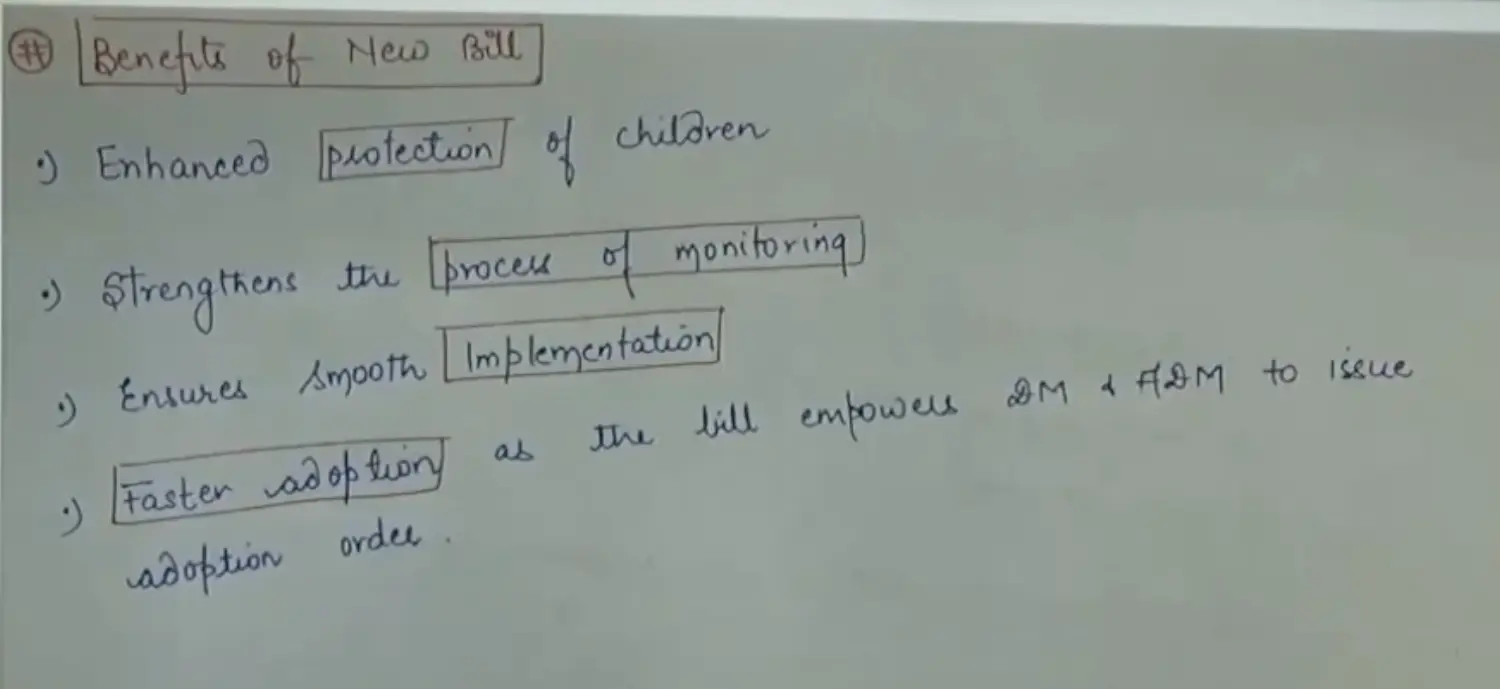 # Benefits of New Bill
•) Enhanced protection of children
•) Strengthens the process of monitoring
•) Ensures smooth Implementation
•) Faster adoption as the bill empowers DM & ADM to issue
adoption order.